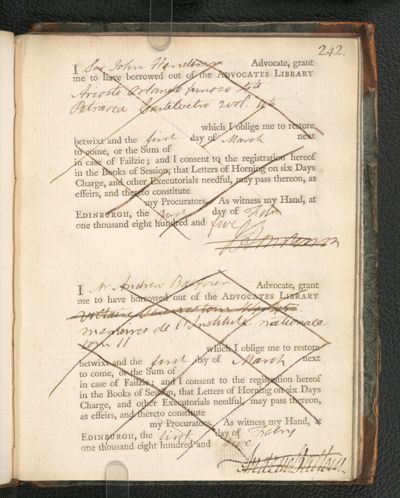 242.
I Sir John Henderson Advocate, grant
me to have borrowed out of the ADVOCATES LIBRARY
Ariosto Orlando furioso 4to
Petrarca 2 vol. 4to
which I oblige me to restore
betwixt and the first day of March next
to come, or the Sum of
in case of Failzie; and I consent to the registration hereof
in the Books of Session, that Letters of Horning on six Days
Charge, and other Executorials needful, may pass thereon, as
effeirs, and thereto constitute
my Procurators. As witness my Hand, at
EDINBURGH, the day of Febry
one thousand eight hundred and five
I Mr Andrew Advocate, grant
me to have borrowed out of the ADVOCATES LIBRARY
memoires de l'Institut nationale
tom 11
which I oblige me to restore
betwixt and the first day of March next
to come, or the Sum of
in case of Failzie; and I consent to the registration hereof
in the Books of Session, that Letters of Horning on six Days
Charge, and other Executorials needful, may pass thereon,
as effeirs, and thereto constitute
my Procurators. As witness my Hand, at
EDINBURGH, the first day of Febry
one thousand eight hundred and five